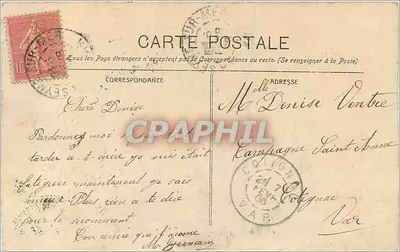 CARTE POSTALE
Tous les Pays étrangers n'acceptent pas la Correspondance au recto. (Se renseigner à la Poste)
CORRESPONDANCE
ADRESSE
Chère Denise
Pardonnez moi si
tarder a t'écrire je suis était
fatiguer maintenant ça vas
mieux Plus rien a te dire
pour le moment
Ton amie qui t'aime
M. Germain
Melle Denise Ventre
Campagne Saint Anne
Cotignac
Var
COTIGNAC
VAR
CPARAMA